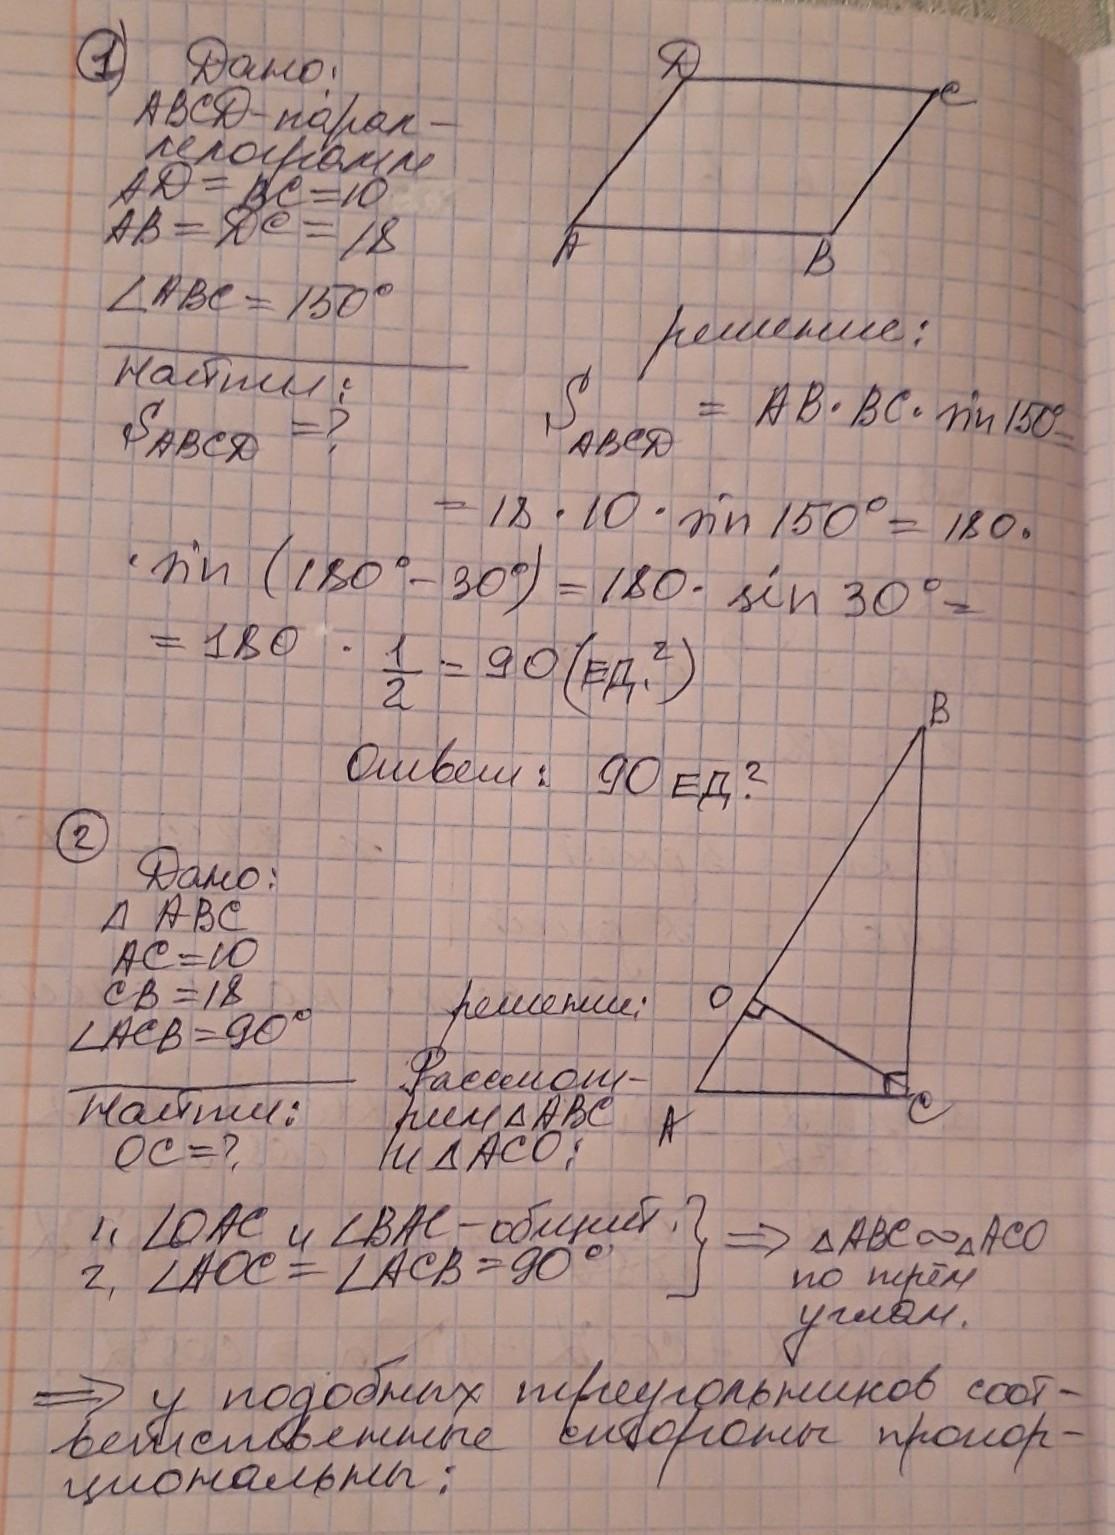 1) Дано:
ABCD - парал-
лелограмм
AD = BC = 10
AB = DC = 18
∠ABC = 150°
Найти:
S ABCD = ?
D
C
A
B
решение:
S ABCD = AB · BC · sin 150° =
= 18 · 10 · sin 150° = 180 ·
· sin (180° - 30°) = 180 · sin 30° =
= 180 · 1/2 = 90 (ЕД.²)
Ответ: 90 ЕД.²
2
Дано:
Δ ABC
AC = 10
CB = 18
∠ACB = 90°
Найти:
OC = ?
B
O
A
C
решение:
Рассмот-
рим Δ ABC
и Δ ACO:
1. ∠OAC и ∠BAC - общий.
2. ∠AOC = ∠ACB = 90°
} ⇒ Δ ABC ∾ Δ ACO
по трём
углам.
⇒ у подобных треугольников соот-
ветственные стороны пропор-
циональны: